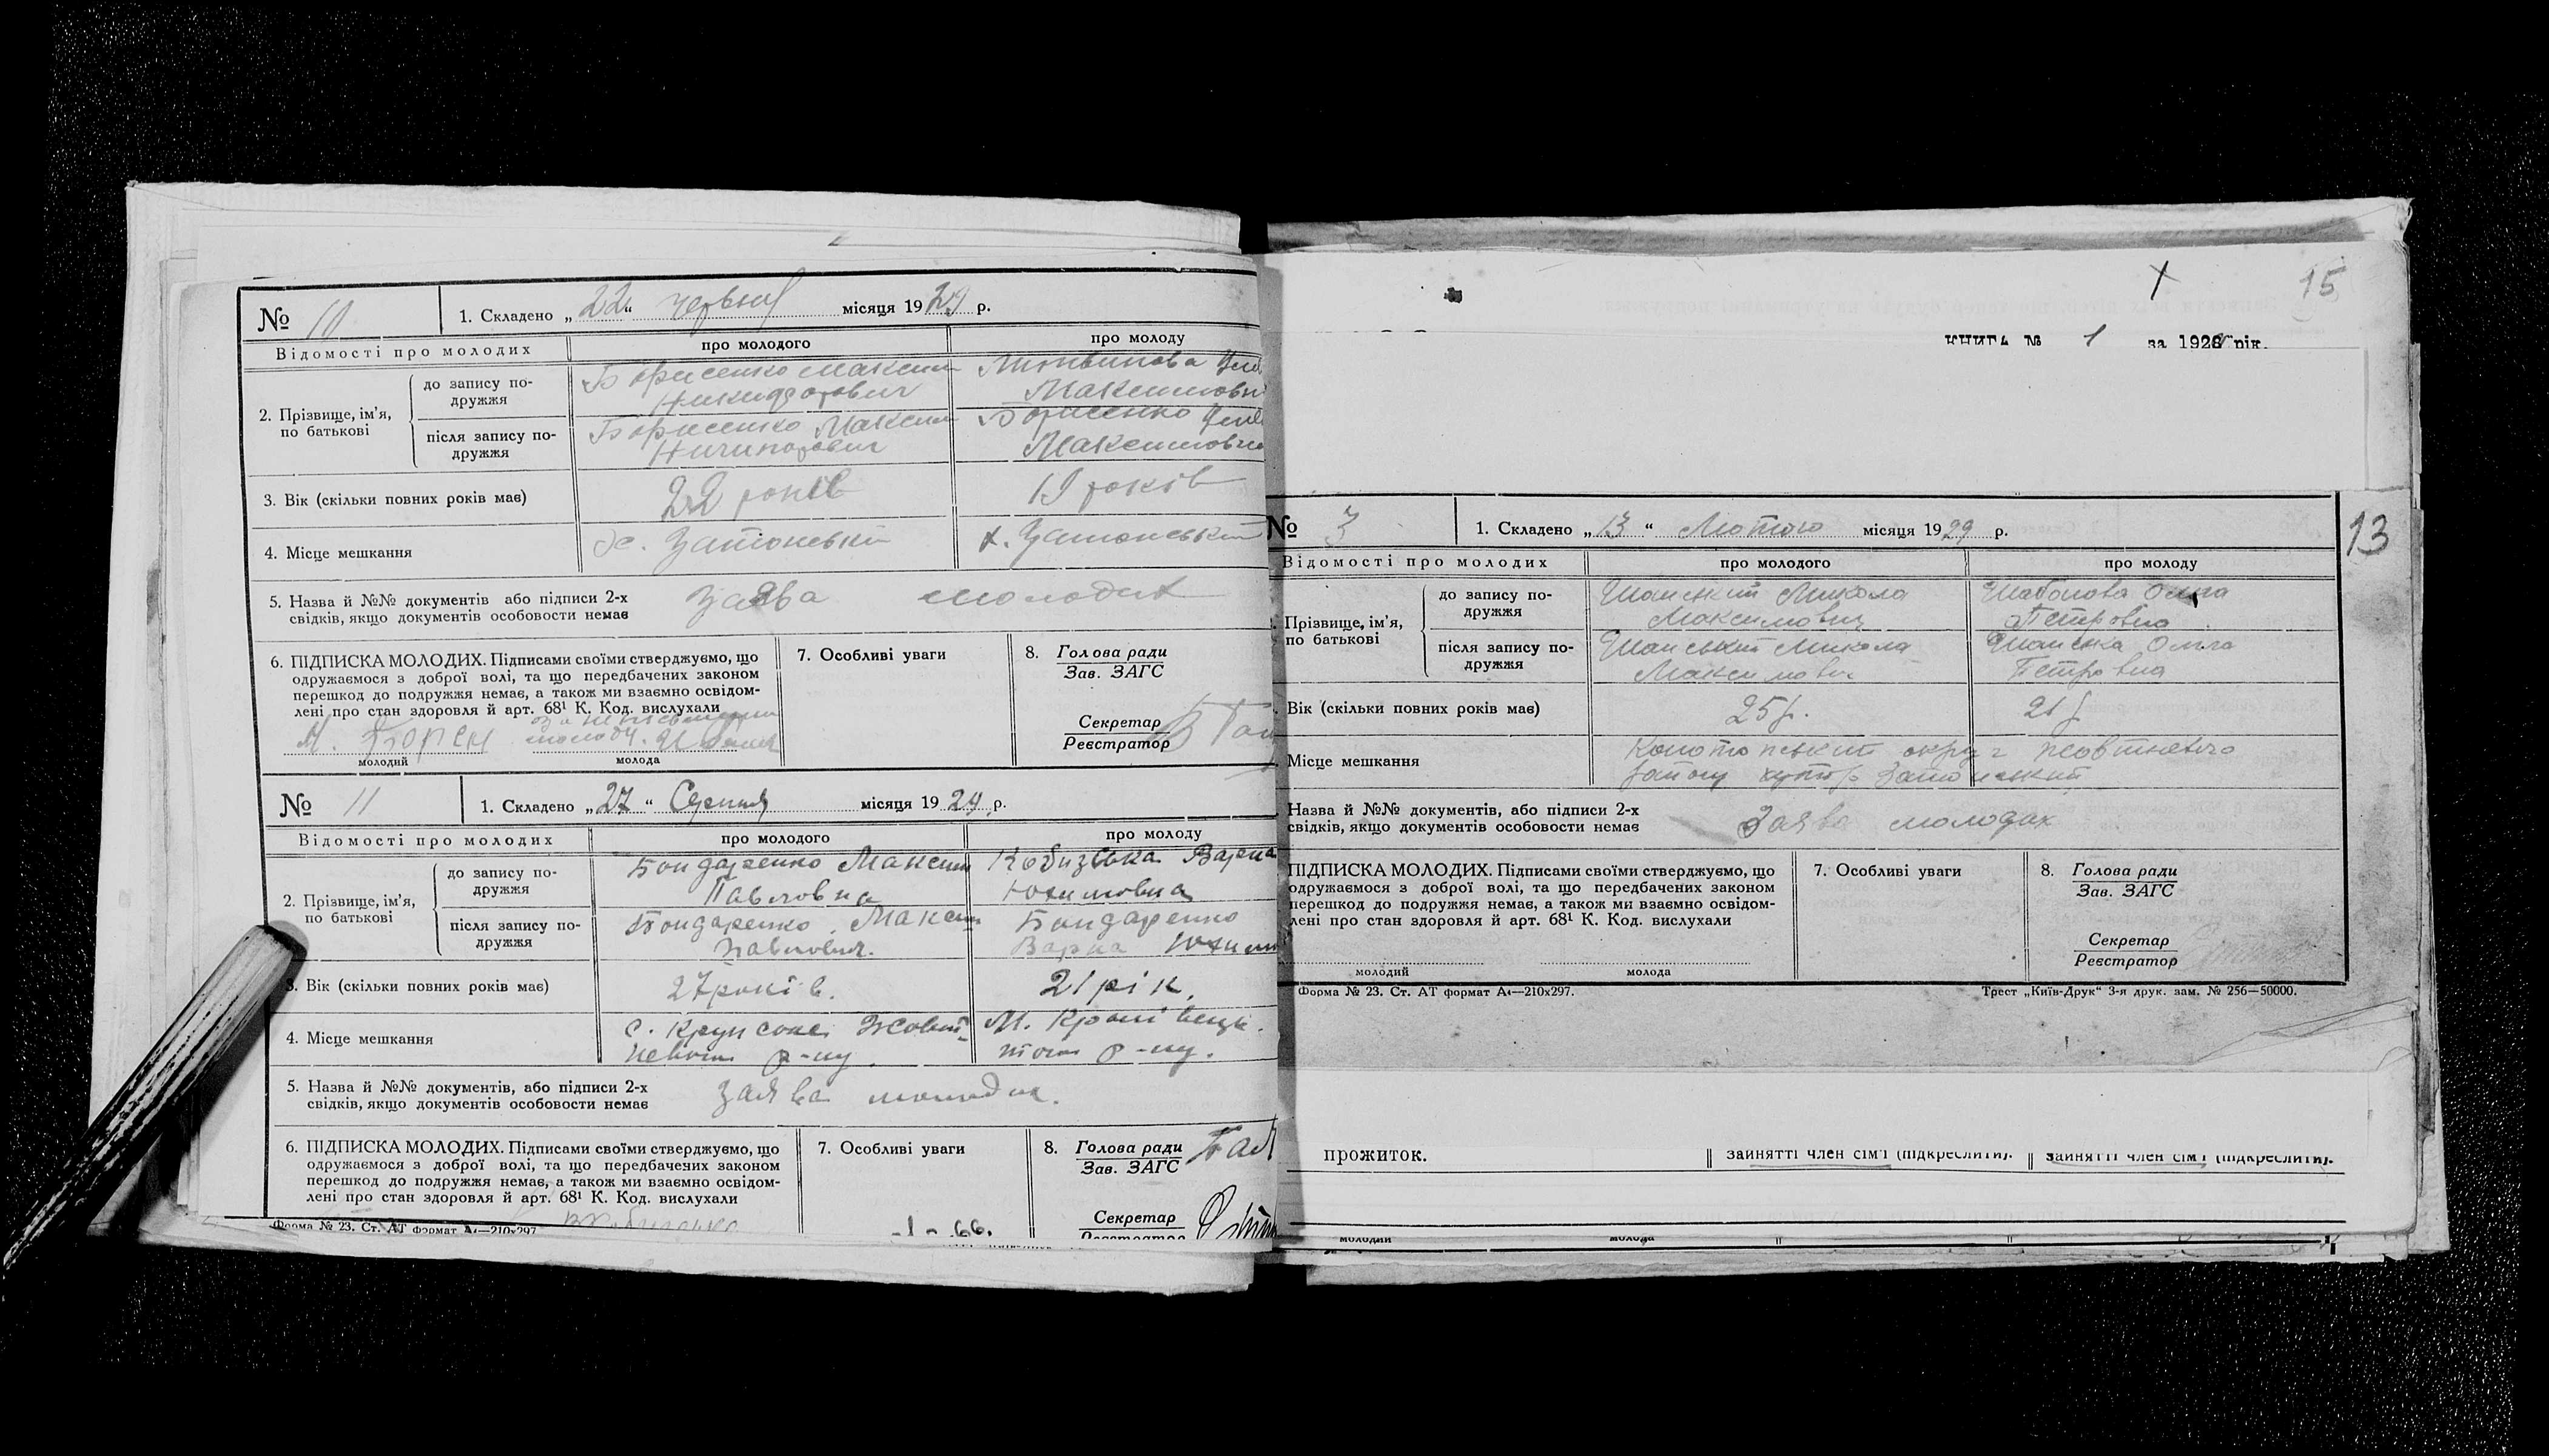 № 10
1. Складено „22“ червня місяця 1929 р.
Відомості про молодих
про молодого
про молоду
2. Прізвище, ім’я, по батькові
до запису подружжя
Борисенко Максим
Никифорович
Литвинова
Максимовн
після запису подружжя
Борисенко Максим
Ничипорович
Борисенко
Максимовна
3. Вік (скільки повних років має)
22 років
19 років
4. Місце мешкання
х. Затонський
х. Затонський
5. Назва й №№ документів або підписи 2-х
свідків, якщо документів особовости немає
заява молодих
6. ПІДПИСКА МОЛОДИХ. Підписами своїми стверджуємо, що
одружаємося з доброї волі, та що передбачених законом
перешкод до подружжя немає, а також ми взаємно освідом-
лені про стан здоровля й арт. 68¹ К. Код. вислухали
за неписьменну
М. Борсен молоду.
молодий
молода
7. Особливі уваги
8. Голова ради
Зав. ЗАГС
Секретар
Реєстратор
№ 11
1. Складено „27“ Серпня місяця 1929 р.
Відомості про молодих
про молодого
про молоду
2. Прізвище, ім’я, по батькові
до запису подружжя
Бондаренко Максим
Павловна
Кобизська Варка
Юхимовна
після запису подружжя
Бондаренко Максим
Павлович.
Бондаренко
Варка Юхим
3. Вік (скільки повних років має)
27 років.
21 рік.
4. Місце мешкання
с. Жовт-
невого р-ну
М. Кролевець.
того р-ну.
5. Назва й №№ документів, або підписи 2-х
свідків, якщо документів особовости немає
заява молодих.
6. ПІДПИСКА МОЛОДИХ. Підписами своїми стверджуємо, що
одружаємося з доброї волі, та що передбачених законом
перешкод до подружжя немає, а також ми взаємно освідом-
лені про стан здоровля й арт. 68¹ К. Код. вислухали
7. Особливі уваги
8. Голова ради
Зав. ЗАГС
Секретар
Реєстратор
Форма № 23. Ст. АТ формат А₄—210х297
15
КНИГА № 1 за 1929 рік.
13
№ 3
1. Складено „13“ Лютого місяця 1929 р.
Відомості про молодих
про молодого
про молоду
Прізвище, ім’я, по батькові
до запису подружжя
Шамський Микола
Максимович
Шаболова Ольга
Петровна
після запису подружжя
Шамський Микола
Максимович
Шамська Ольга
Петровна
Вік (скільки повних років має)
25 р.
21 р
Місце мешкання
Конотопський округ Жовтневого
району хутір Затонський
Назва й №№ документів, або підписи 2-х
свідків, якщо документів особовости немає
Заява молодих
ПІДПИСКА МОЛОДИХ. Підписами своїми стверджуємо, що
одружаємося з доброї волі, та що передбачених законом
перешкод до подружжя немає, а також ми взаємно освідом-
лені про стан здоровля й арт. 68¹ К. Код. вислухали
молодий
молода
7. Особливі уваги
8. Голова ради
Зав. ЗАГС
Секретар
Реєстратор
Форма № 23. Ст. АТ формат А₄—210х297.
Трест „Київ-Друк“ 3-я друк. зам. № 256—50000.
прожиток.
зайнятті член сім’ї (підкреслити).
зайнятті член сім’ї (підкреслити).
молодий
молода